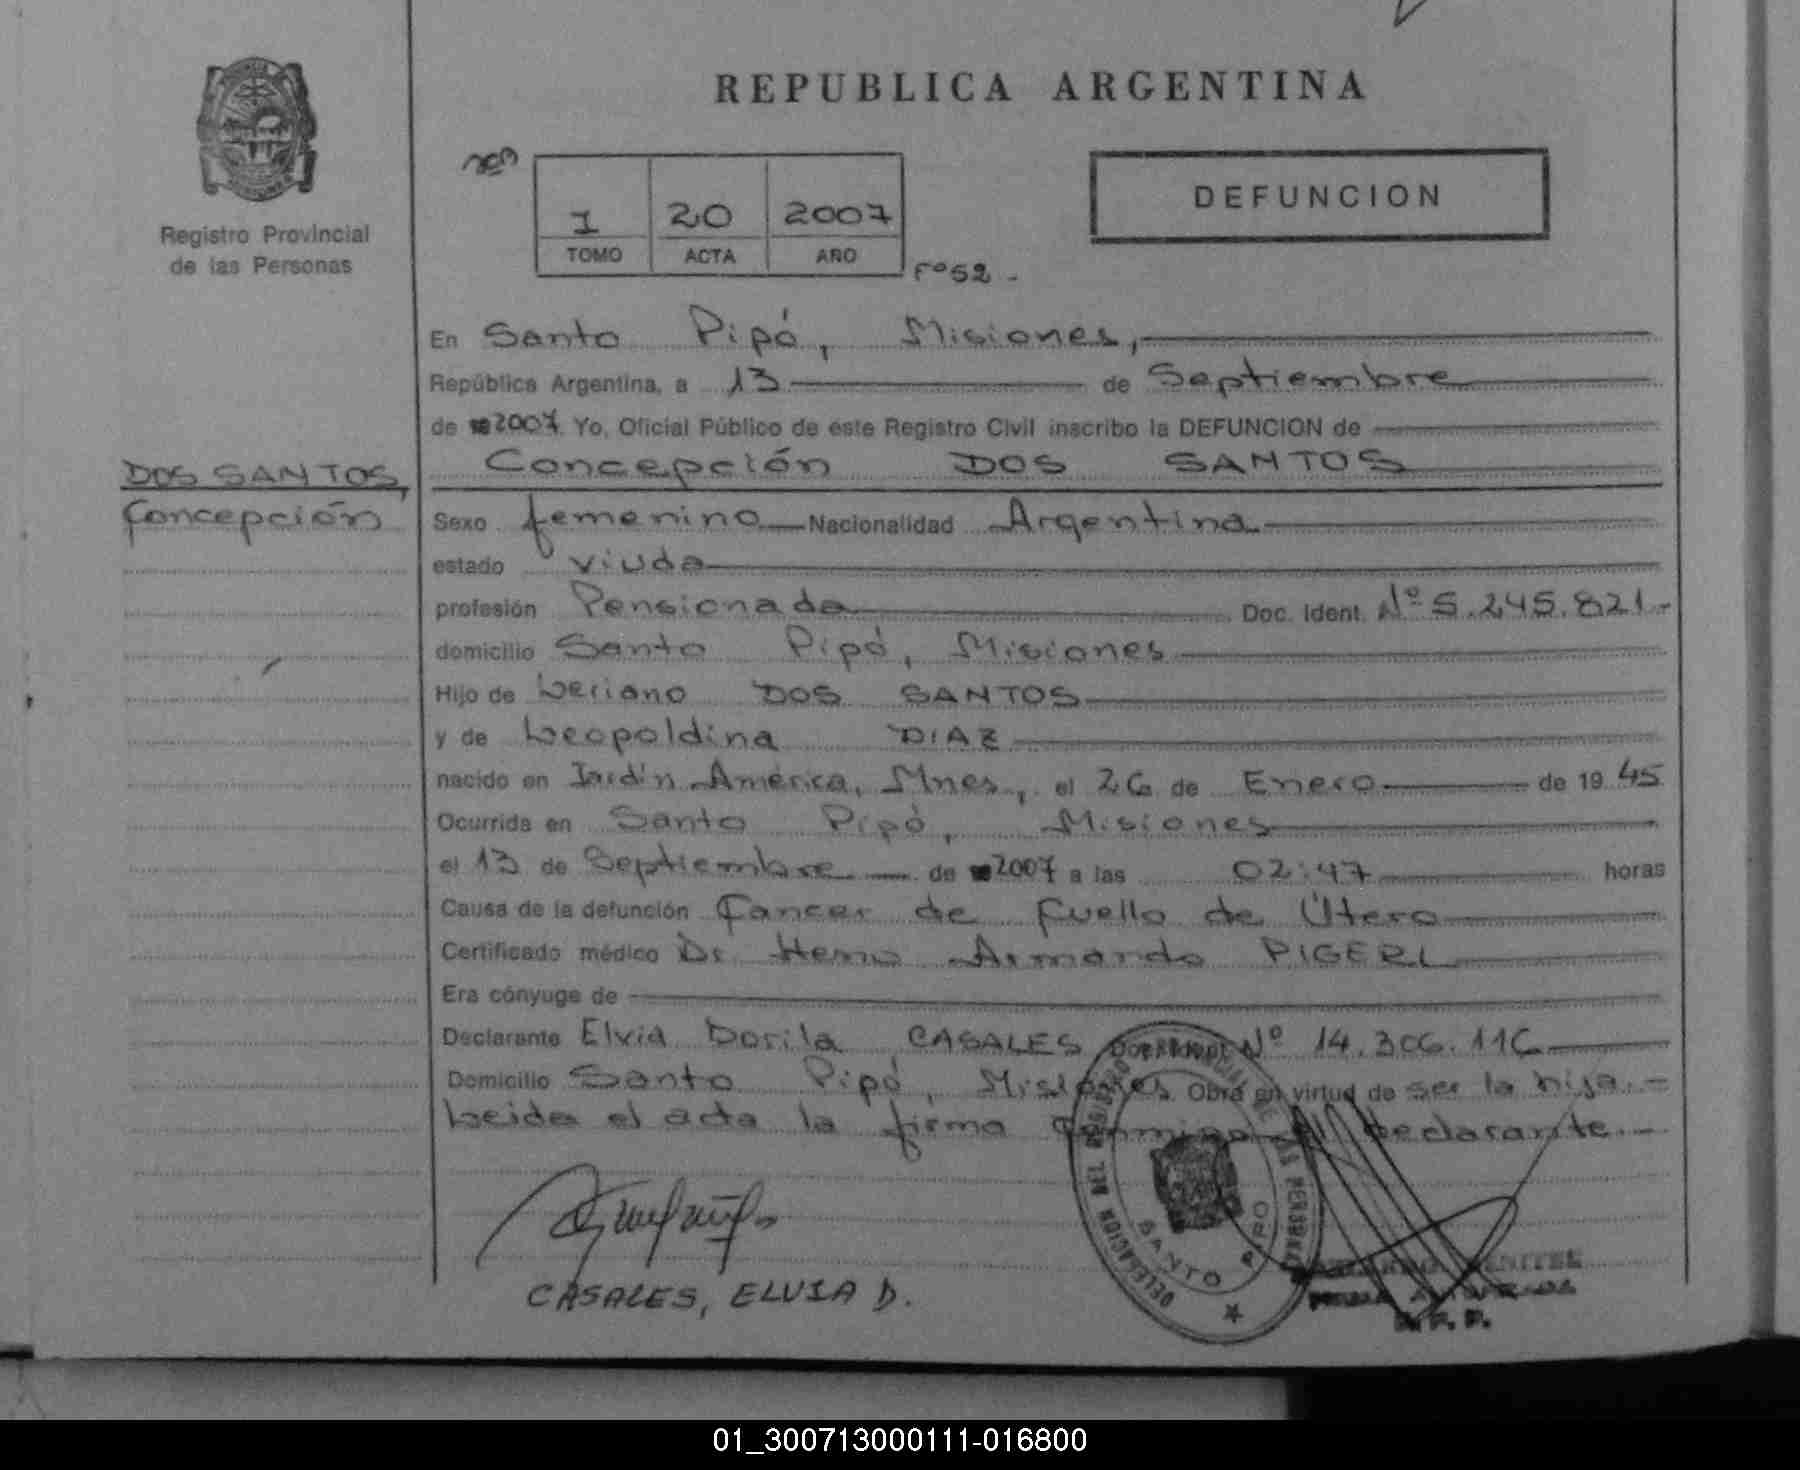 REPUBLICA ARGENTINA
Registro Provincial
de las Personas
1 20 2007
TOMO ACTA AÑO
Fº 52 -
DEFUNCION
En Santo Pipó, Misiones,
República Argentina, a 13 de Septiembre
de 2007. Yo, Oficial Público de este Registro Civil inscribo la DEFUNCION de
DOS SANTOS,
Concepción
Concepción DOS SANTOS
Sexo femenino Nacionalidad Argentina
estado viuda
profesión Pensionada Doc. Ident. Nº 5.245.821.-
domicilio Santo Pipó, Misiones
Hijo de Leriano DOS SANTOS
y de Leopoldina DIAZ
nacido en Jardín América, Mnes, el 26 de Enero de 19 45
Ocurrida en Santo Pipó, Misiones
el 13 de Septiembre de 2007 a las 02:47 horas
Causa de la defunción Cancer de Cuello de Útero
Certificado médico Dr. Armando PIGERL
Era cónyuge de
Declarante Elvia Dorila CASALES Nº 14.306.116
Domicilio Santo Pipó, Misiones Obra en virtud de ser la hija.-
Leida el acta la firma conmigo el Declarante.-
CASALES, ELVIA D.
DELEGACION DEL REGISTRO PROVINCIAL DE LAS PERSONAS
SANTO PIPO
01_300713000111-016800